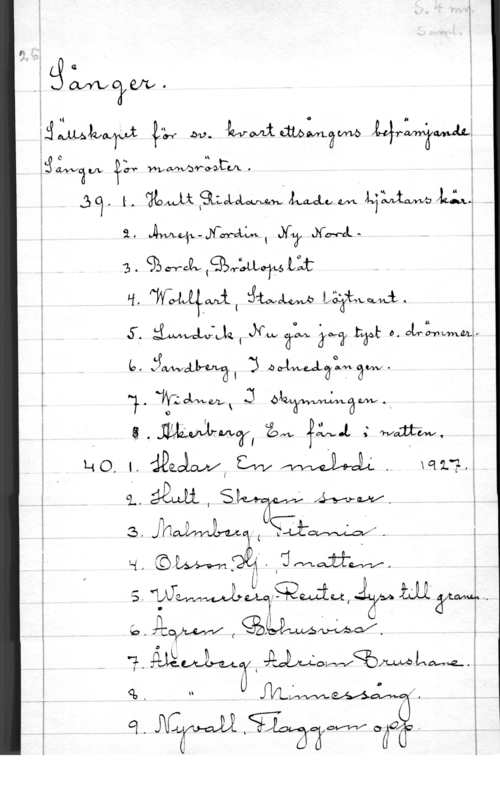 S. 4 mn
Saml.
25
Sånger.
Sällskapet för sv. kvartettsångens befrämjande
Sånger för mansröster.
39. 1. Hult, Riddaren hade en hjärtans kär.
2. Anrep-Nordin, Ny Nord.
3. Borch, Bröllopslåt
4. Wohlfart, Stadens löjtnant.
5. Lundvik, Nu går jag tyst o. drömmer.
6. Sandberg, I solnedgången.
7. Widner, I skymningen.
8. Åkerberg, En färd i natten.
40. 1. Hedar, En melodi. 1927.
2. Hult, Skogen sover.
3. Malmberg, Titania.
4. Olsson, Hj., I natten.
5. Wennerberg-Reuter, Lyss till granen.
6. Ågren, Bohusvisa.
7. Åkerberg, Adrian Brushane.
8. " Minnessång.
9. Nyvall, Flaggan opp